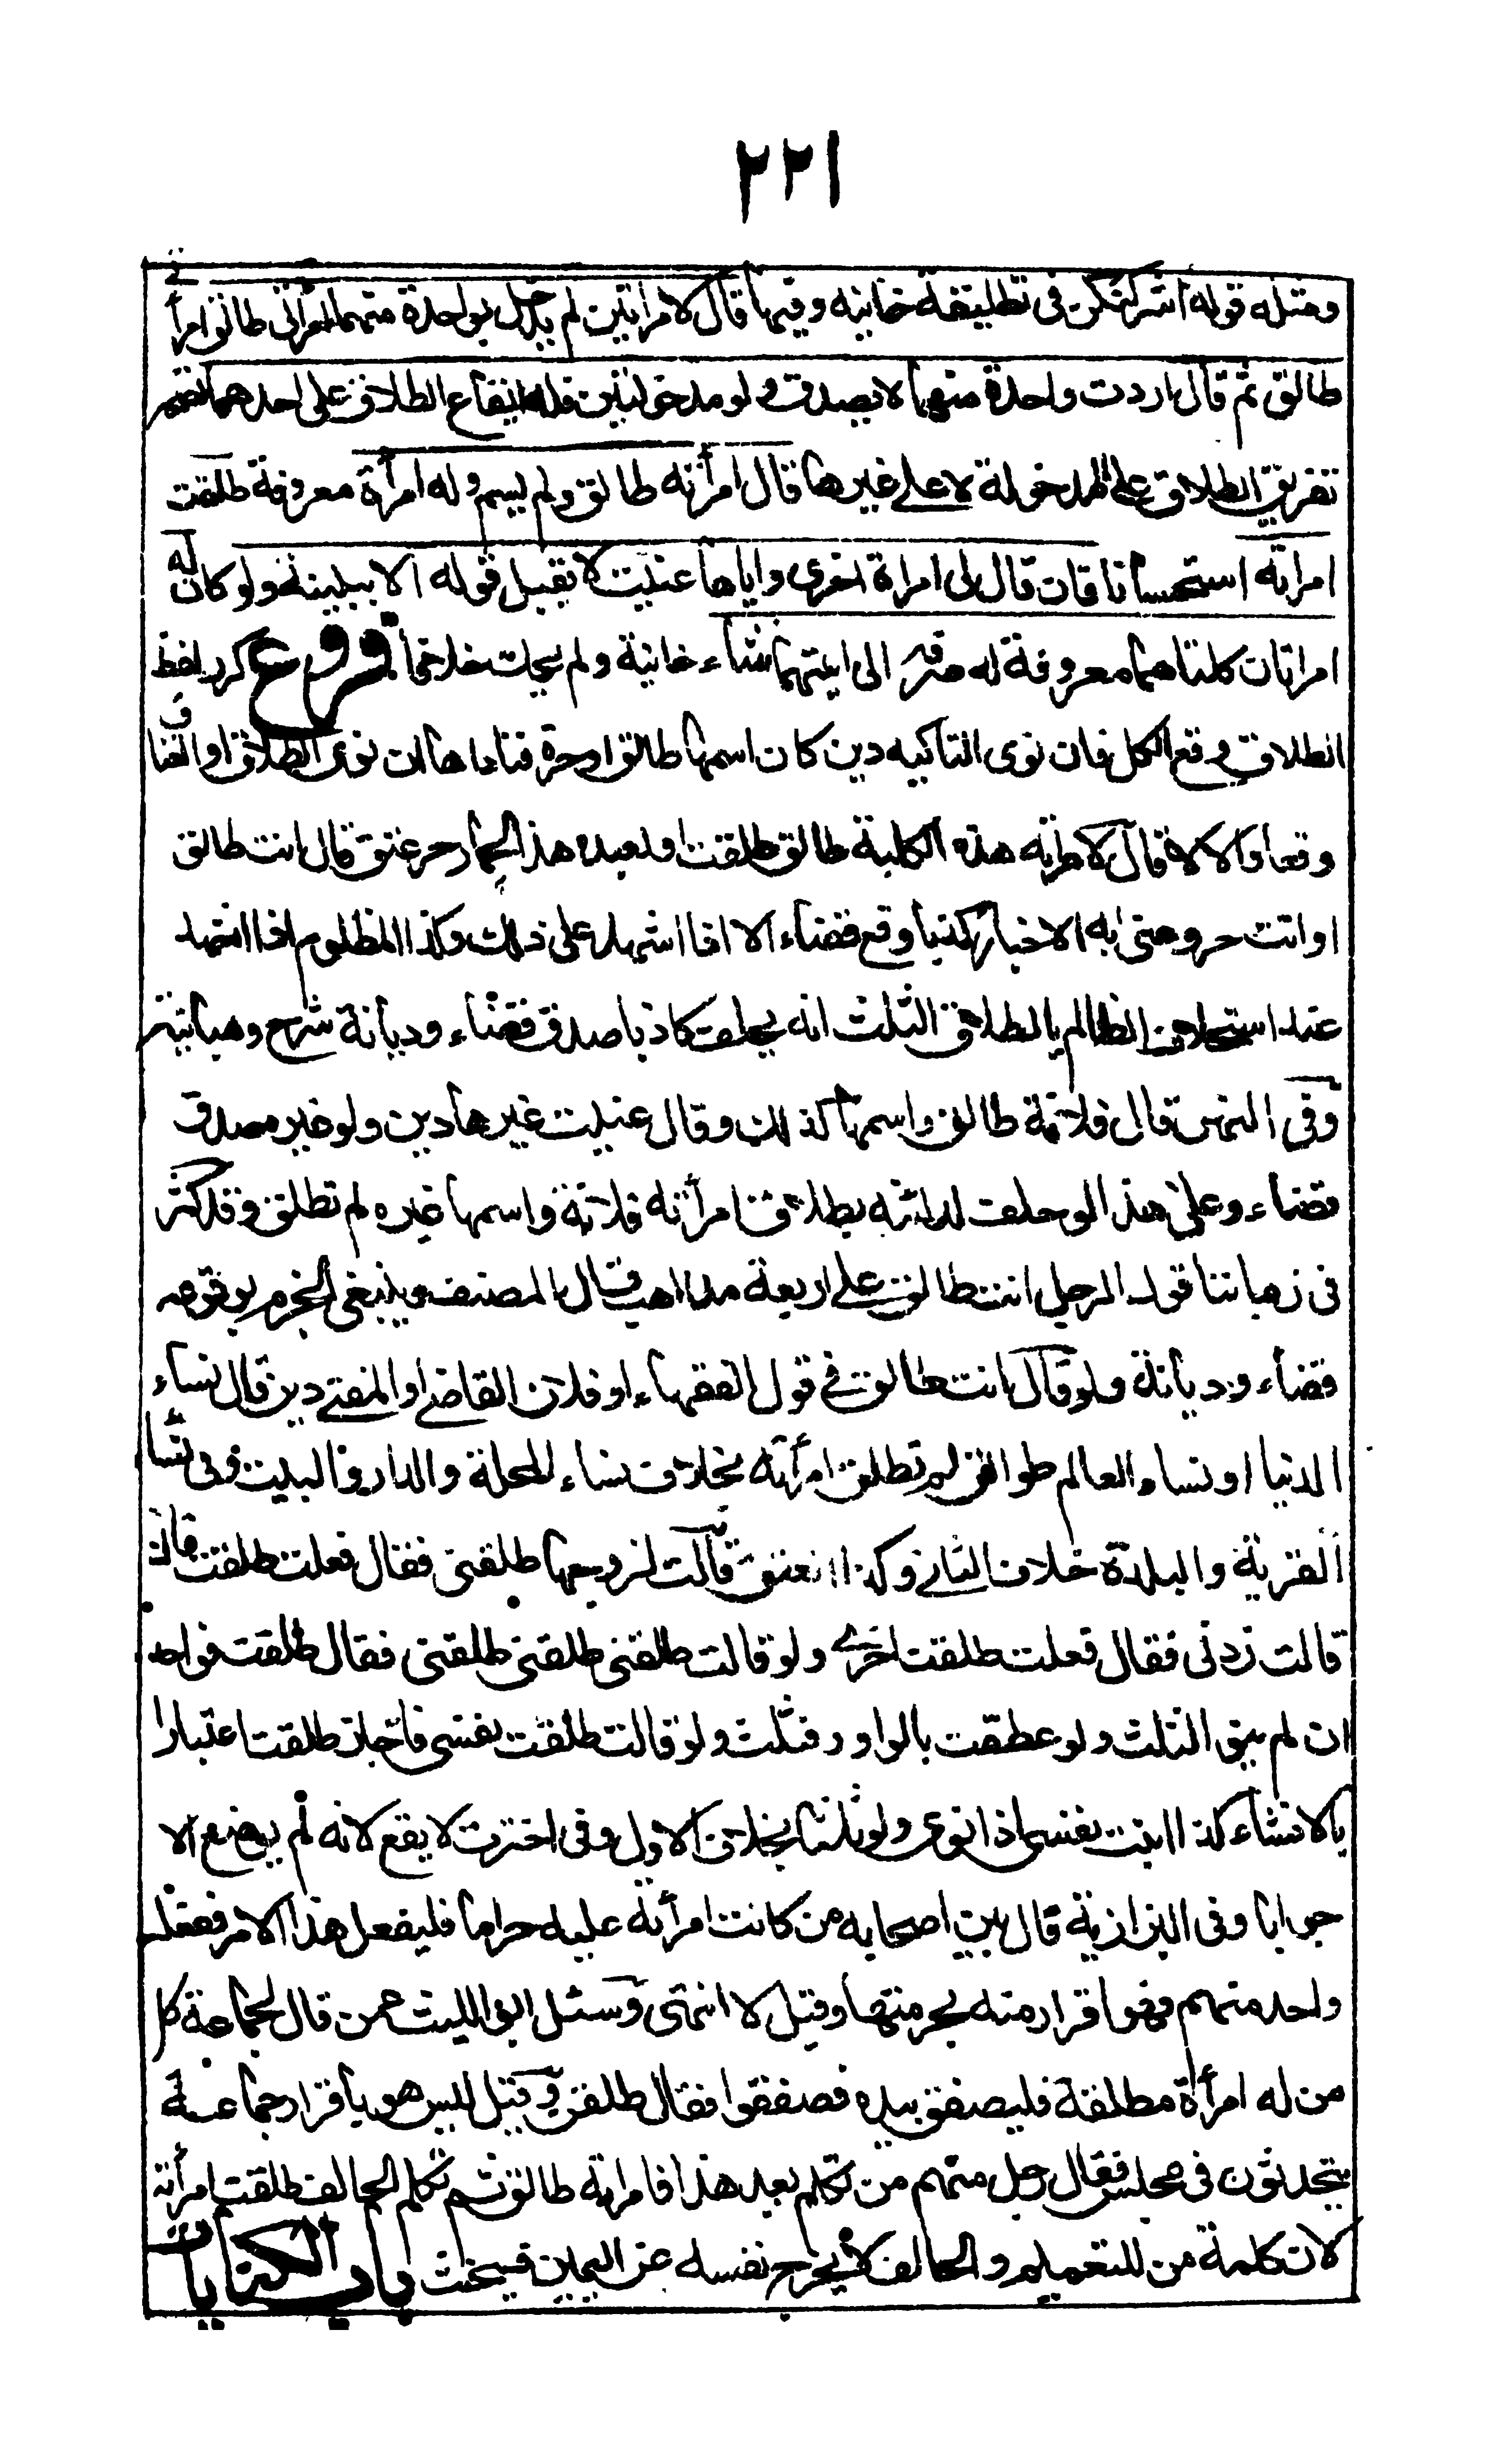 ٢٢١
ومثله قوله أشركتكن فى تطليقة خانية وفيها قال لامرأتين لم يدخل بواحدة منهما امرأتى طالق امرأتى
طالق ثم قال اردت واحدة منهما لا يصدق ولو مدخولتين فله ايقاع الطلاق على احدهما لصحة
تفريق الطلاق على المدخولة لا على غيرها قال امرأته طالق ولم يسم وله امرأة معروفة طلقت
امرأته استحسانا فان قال لى امرأة اخرى واياها عنيت لا يقبل قوله الا ببينة ولو كان له
امرأتان كلتاهما معروفة له صرفه الى ايتهما شاء خانية ولم يحك خلافا فروع كرر لفظ
الطلاق وقع الكل فان نوى التاكيد دين كان اسمها طالق او حرة فناداها ان نوى الطلاق او العتاق
وقعا والا لا قال لامرأته هذه الكلبة طالق طلقت او لعبده هذا الحمار حر عتق قال انت طالق
او انت حر وعنى به الاخبار كذبا وقع قضاء الا اذا اشهد على ذلك وكذا المظلوم اذا اشهد
عند استحلاف الظالم بالطلاق الثلث انه يحلف كاذبا صدق قضاء وديانة شرح وهبانية
وفى النهر قال فلانة طالق واسمها كذلك وقال عنيت غيرها دين ولو غيره صدق
قضاء وعلى هذا لو حلف لدائنه بطلاق امرأته فلانة واسمها غيره لم تطلق وقد كثر
فى زماننا قول الرجل انت طالق على اربعة مذاهب قال المصنف وينبغى الجزم بوقوعه
قضاء وديانة ولو قال انت طالق فى قول الفقهاء او فلان القاضى او المفتى دين قال نساء
الدنيا او نساء العالم طوالق لم تطلق امرأته بخلاف نساء المحلة والدار والبيت وفى نساء
القرية والبلدة خلاف الثانى وكذا العتق قالت لزوجها طلقنى فقال فعلت طلقت فان
قالت زدنى فقال فعلت طلقت اخرى ولو قالت طلقنى طلقنى طلقنى فقال طلقت فواحدة
ان لم ينو الثلث ولو عطفت بالواو فثلث ولو قالت طلقت نفسى فاجاز طلقت اعتبارا
بالانشاء كذا ابنت نفسى اذا نوى ولو ثلثا بخلاف الاول وفى اخترت لا يقع لانه لم يوضع الا
جوابا وفى البزازية قال بين اصحابه من كانت امرأته عليه حراما فليفعل هذا الامر ففعله
واحد منهم فهو اقرار منه بحرمتها وقيل لا انتهى وسئل ابو الليث عمن قال لجماعة كل
من له امرأة مطلقة فليصفق بيده فصفقوا فقال طلقن وقيل ليس هو باقرار جماعة
يتحدثون فى مجلس فقال رجل منهم من تكلم بعد هذا فامرأته طالق ثم تكلم الحالف طلقت امرأته
لان كلمة من للتعميم والحالف لا يخرج نفسه عن اليمين فيحنث باب الكنايات